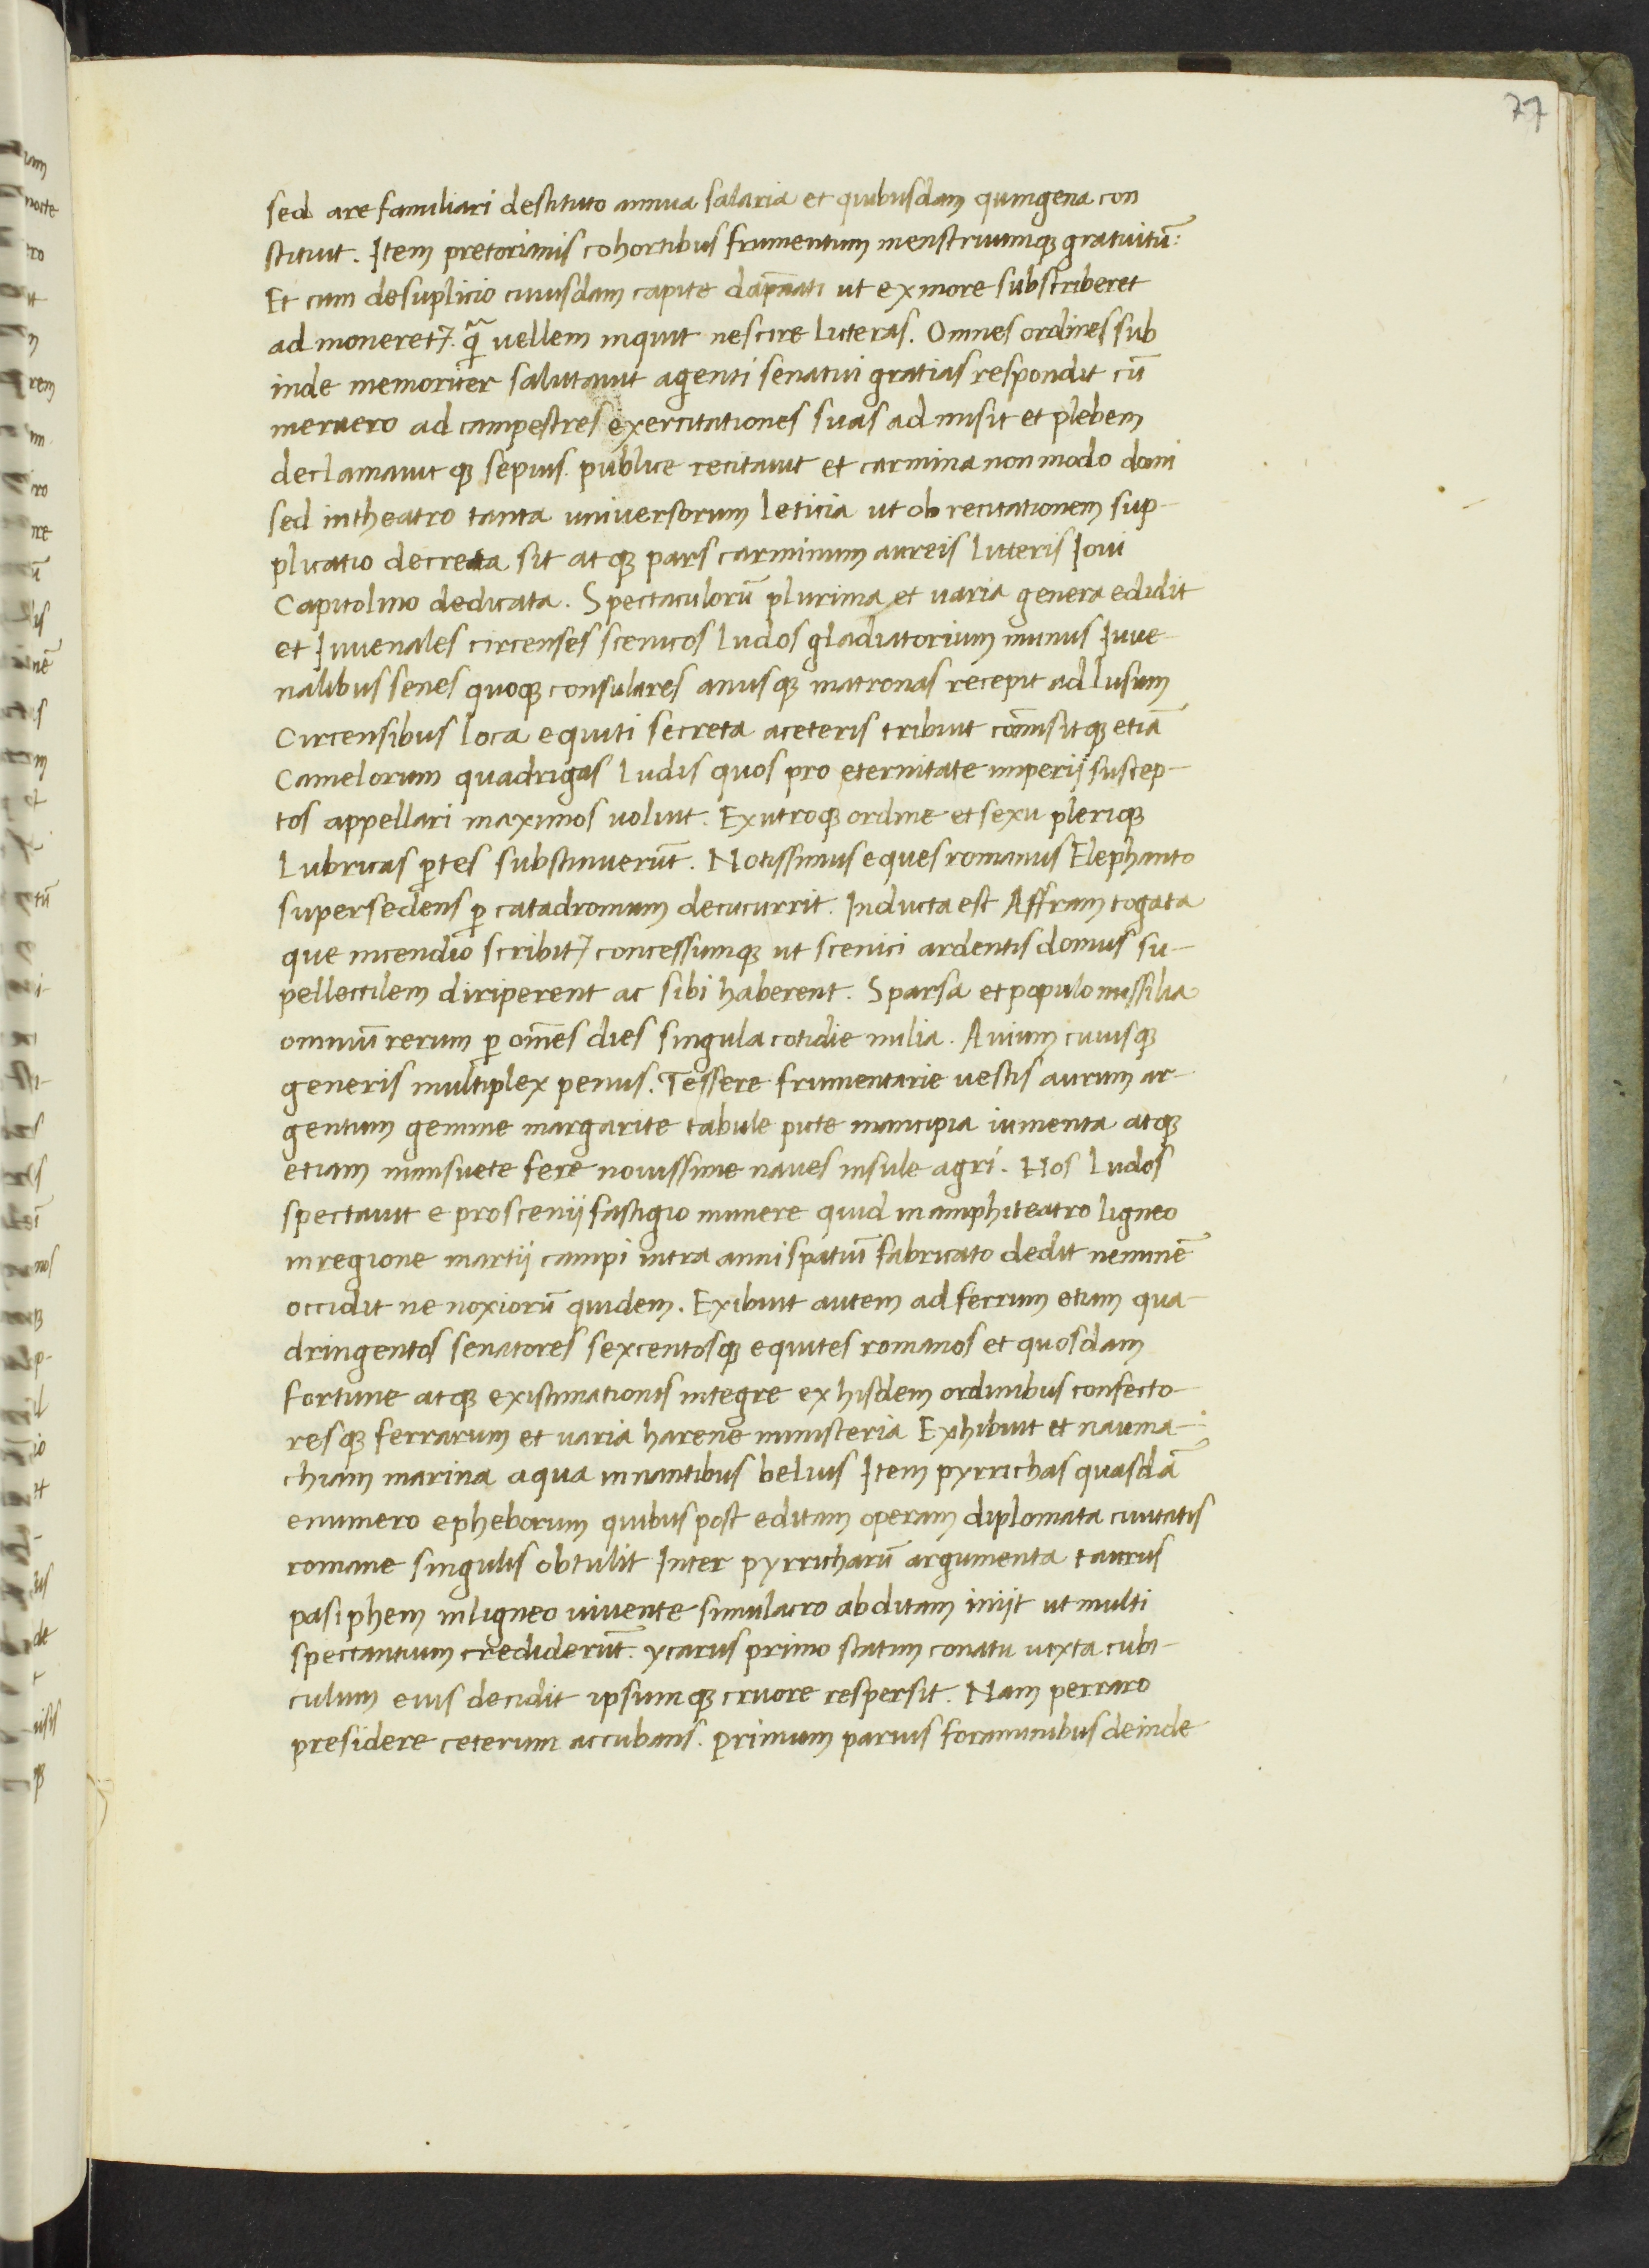 77
sed are familiari destituto annua salaria et quibusdam quingena con
stituit. Item pretorianis cohortibus frumentum menstruumqꝫ gratuitū:
Et cum desuplicio cuiusdam capite dapnati ut ex more subscriberet
ad moneret᷑. ꝙ̃ uellem inquit nescire litteras. Omnes ordines sub
inde memoriter salutauit agenti senatui gratias respondit cū
meruero ad campestres exercitationes suas ad misit et plebem
declamauit qꝫ sepius. publice recitauit et carmina non modo domi
sed intheatro tanta uniuersorum leticia ut ob recitationem sup-
plicatio decreta sit at qꝫ pars carminum aureis litteris Ioui
Capitolino dedicata. Spectaculorū plurima et uaria genera edidit
et Iuuenales circenses scenicos ludos gladiatorium munus Iuue-
nalibus senes quoqꝫ consulares anus qꝫ matronas recepit ad lusum
Circensibus loca equiti secreta aceteris tribuit cōmisitqꝫ etiā
Camelorum quadrigas ludis quos pro eternitate imperij suscep-
tos appellari maximos uoluit. Exutroqꝫ ordine et sexu pleriqꝫ
Lubricas ꝑtes substinuerūt. Notissimus eques romanus Elephanto
supersedens ꝑ catadromum decucurrit. Inducta est Affram togata
que incendio scribit᷑ concessumqꝫ ut scenici ardentis domus su-
pellectilem diriperent ac sibi haberent. Sparsa et populo missilia
omniū rerum ꝑ oms̄ dies singula cotidie milia. Auium cuiusqꝫ
generis multiplex penus. Tessere frumentarie uestis aurum ar-
gentum gemme margarite tabule picte mancipia iumenta atqꝫ
etiam mansuete fere nouissime naues insule agri. Hos ludos
spectauit e proscenij fastigio munere quid in amphiteatro ligneo
inregione martij campi intra anni spatiū fabricato dedit neminē
occidit ne noxiorū quidem. Exibuit autem ad ferrum etiam qua-
dringentos senatores sexcentosqꝫ equites romanos et quosdam
fortune atqꝫ existimationis integre ex hisdem ordinibus confecto-
res qꝫ ferrarum et uaria harene ministeria Exhibuit et nauma-
chiam marina aqua innantibus beluis Item pyrrichas quasdā
enumero epheborum quibus post editam operam diplomata ciuitatis
romane singulis obtulit Inter pyrricharū argumenta taurus
pasiphem inligneo uiuente simulacro abditam inijt ut multi
spectantium crediderūt. ycarus primo statim conatu iuxta cubi-
culum eius decidit ipsumqꝫ cruore respersit. Nam perraro
presidere ceterum accubans. primum paruis foraminibus deinde